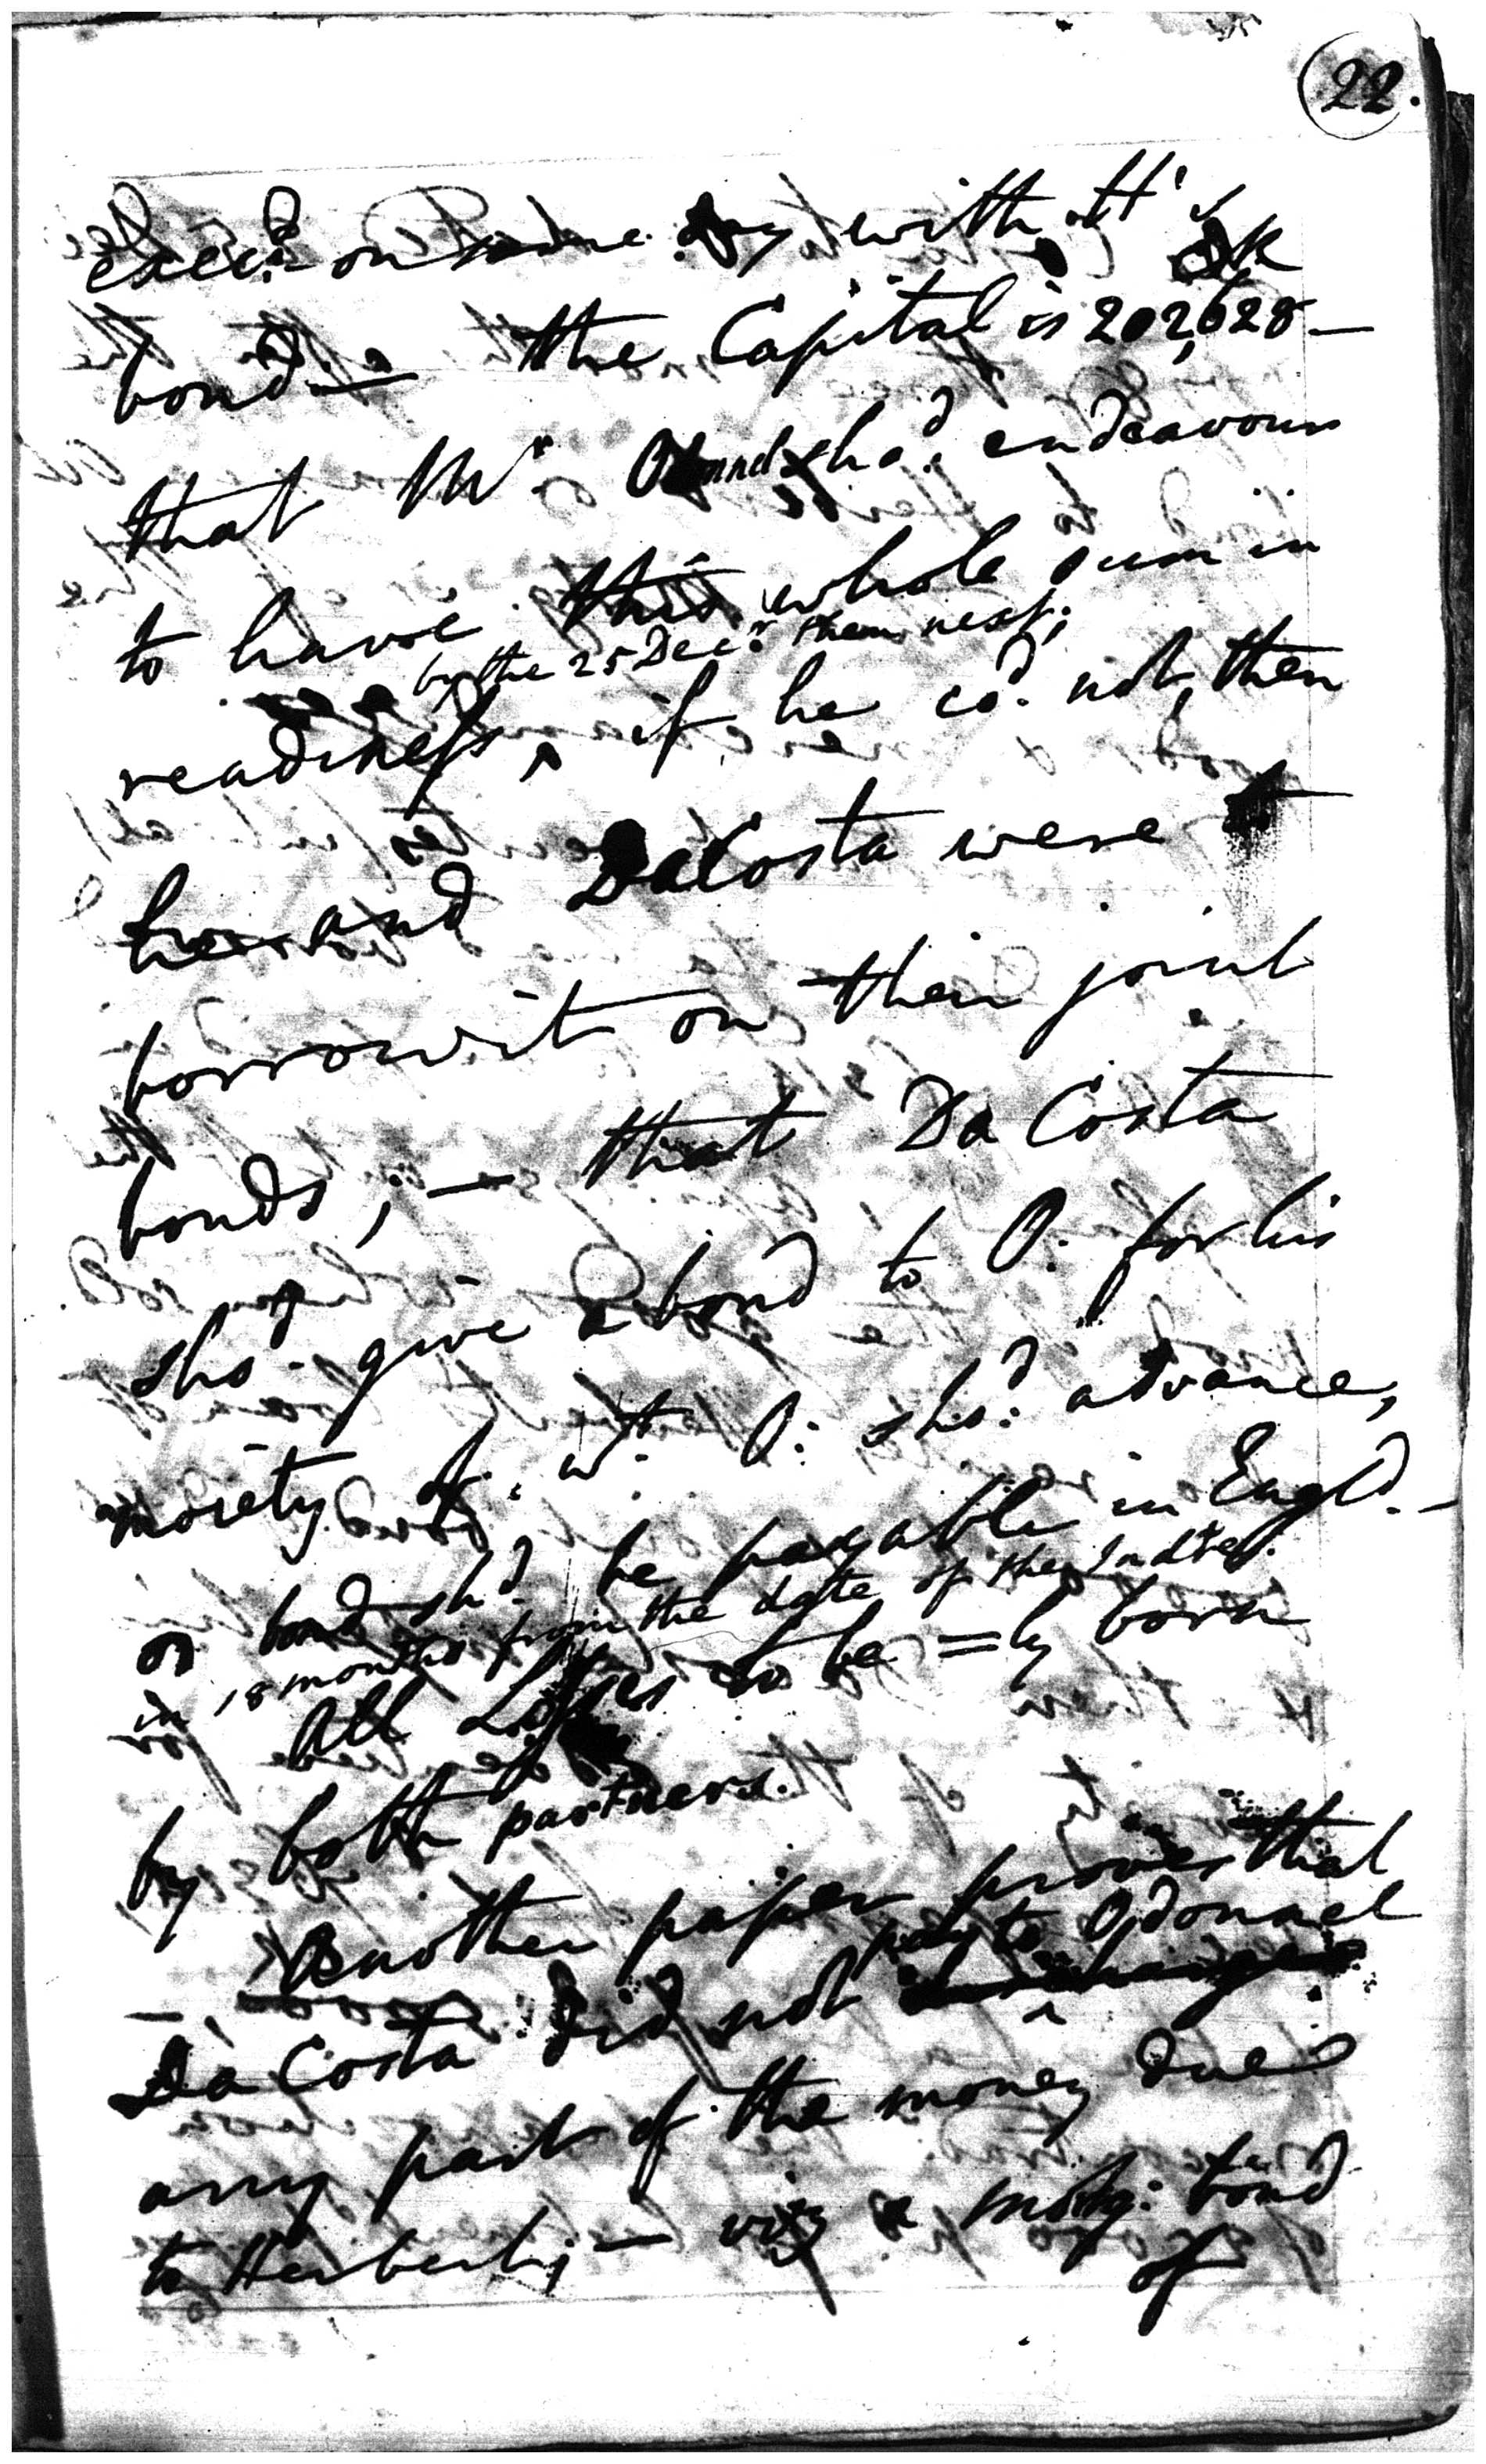 22.
Exec.d on same day with H's
bond — the Capital is 202,628 —
that Mr. Odonnel sho.d endeavour
to have this whole sum in
by the 25 Decr. then next;
readiness, if he co.d not, then
he and DaCosta were to
borrow it on their joint
bonds; — that Da Costa
sho.d give a bond to O: for his
moiety of wt. O: sho.d advance,
or bond sh.d be payable in Engl.d —
in 18 months from the date of the Indtre.
All Losses to be =ly born
by both partners.
Another paper proves that
pay to Odonnel
Da Costa did not
any part of the money due
to Herbert; — viz a mortg: bond
of